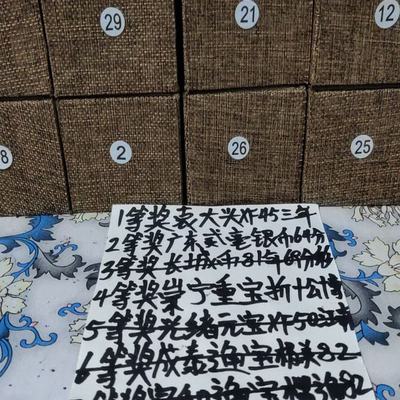 29
21
12
8
2
26
25
1等奖袁大头XF45三年
2等奖广东贰毫银币64分
3等奖长城币81年68分
4等奖崇宁重宝折十公博
5等奖光绪元宝XF50江南
6等奖咸泰通宝 82
等奖宣和通宝 82